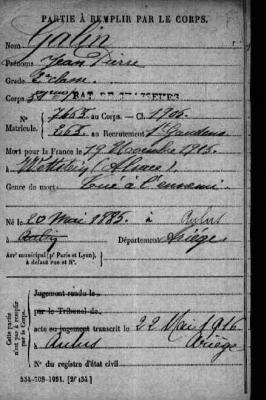 PARTIE À REMPLIR PAR LE CORPS.
Nom Galin
Prénoms Jean Pierre
Grade 2e classe
Corps BAT. DE CHASSEURS
N° 7653 au Corps. — Cl. 1905
Matricule. 263 au Recrutement St Gaudens
Mort pour la France le 19 Novembre 1915
à Wettstein (Alsace)
Genre de mort Tué à l'ennemi
Né le 20 Mai 1885
à Aulus Département Ariège
Arrt municipal (pr Paris et Lyon),
à défaut rue et N°.
Cette partie
n'est pas à remplir
par le Corps.
Jugement rendu le
par le Tribunal de
acte ou jugement transcrit le 22 Mai 1916
à Aulus Ariège
N° du registre d'état civil
534-708-1921. [26434]